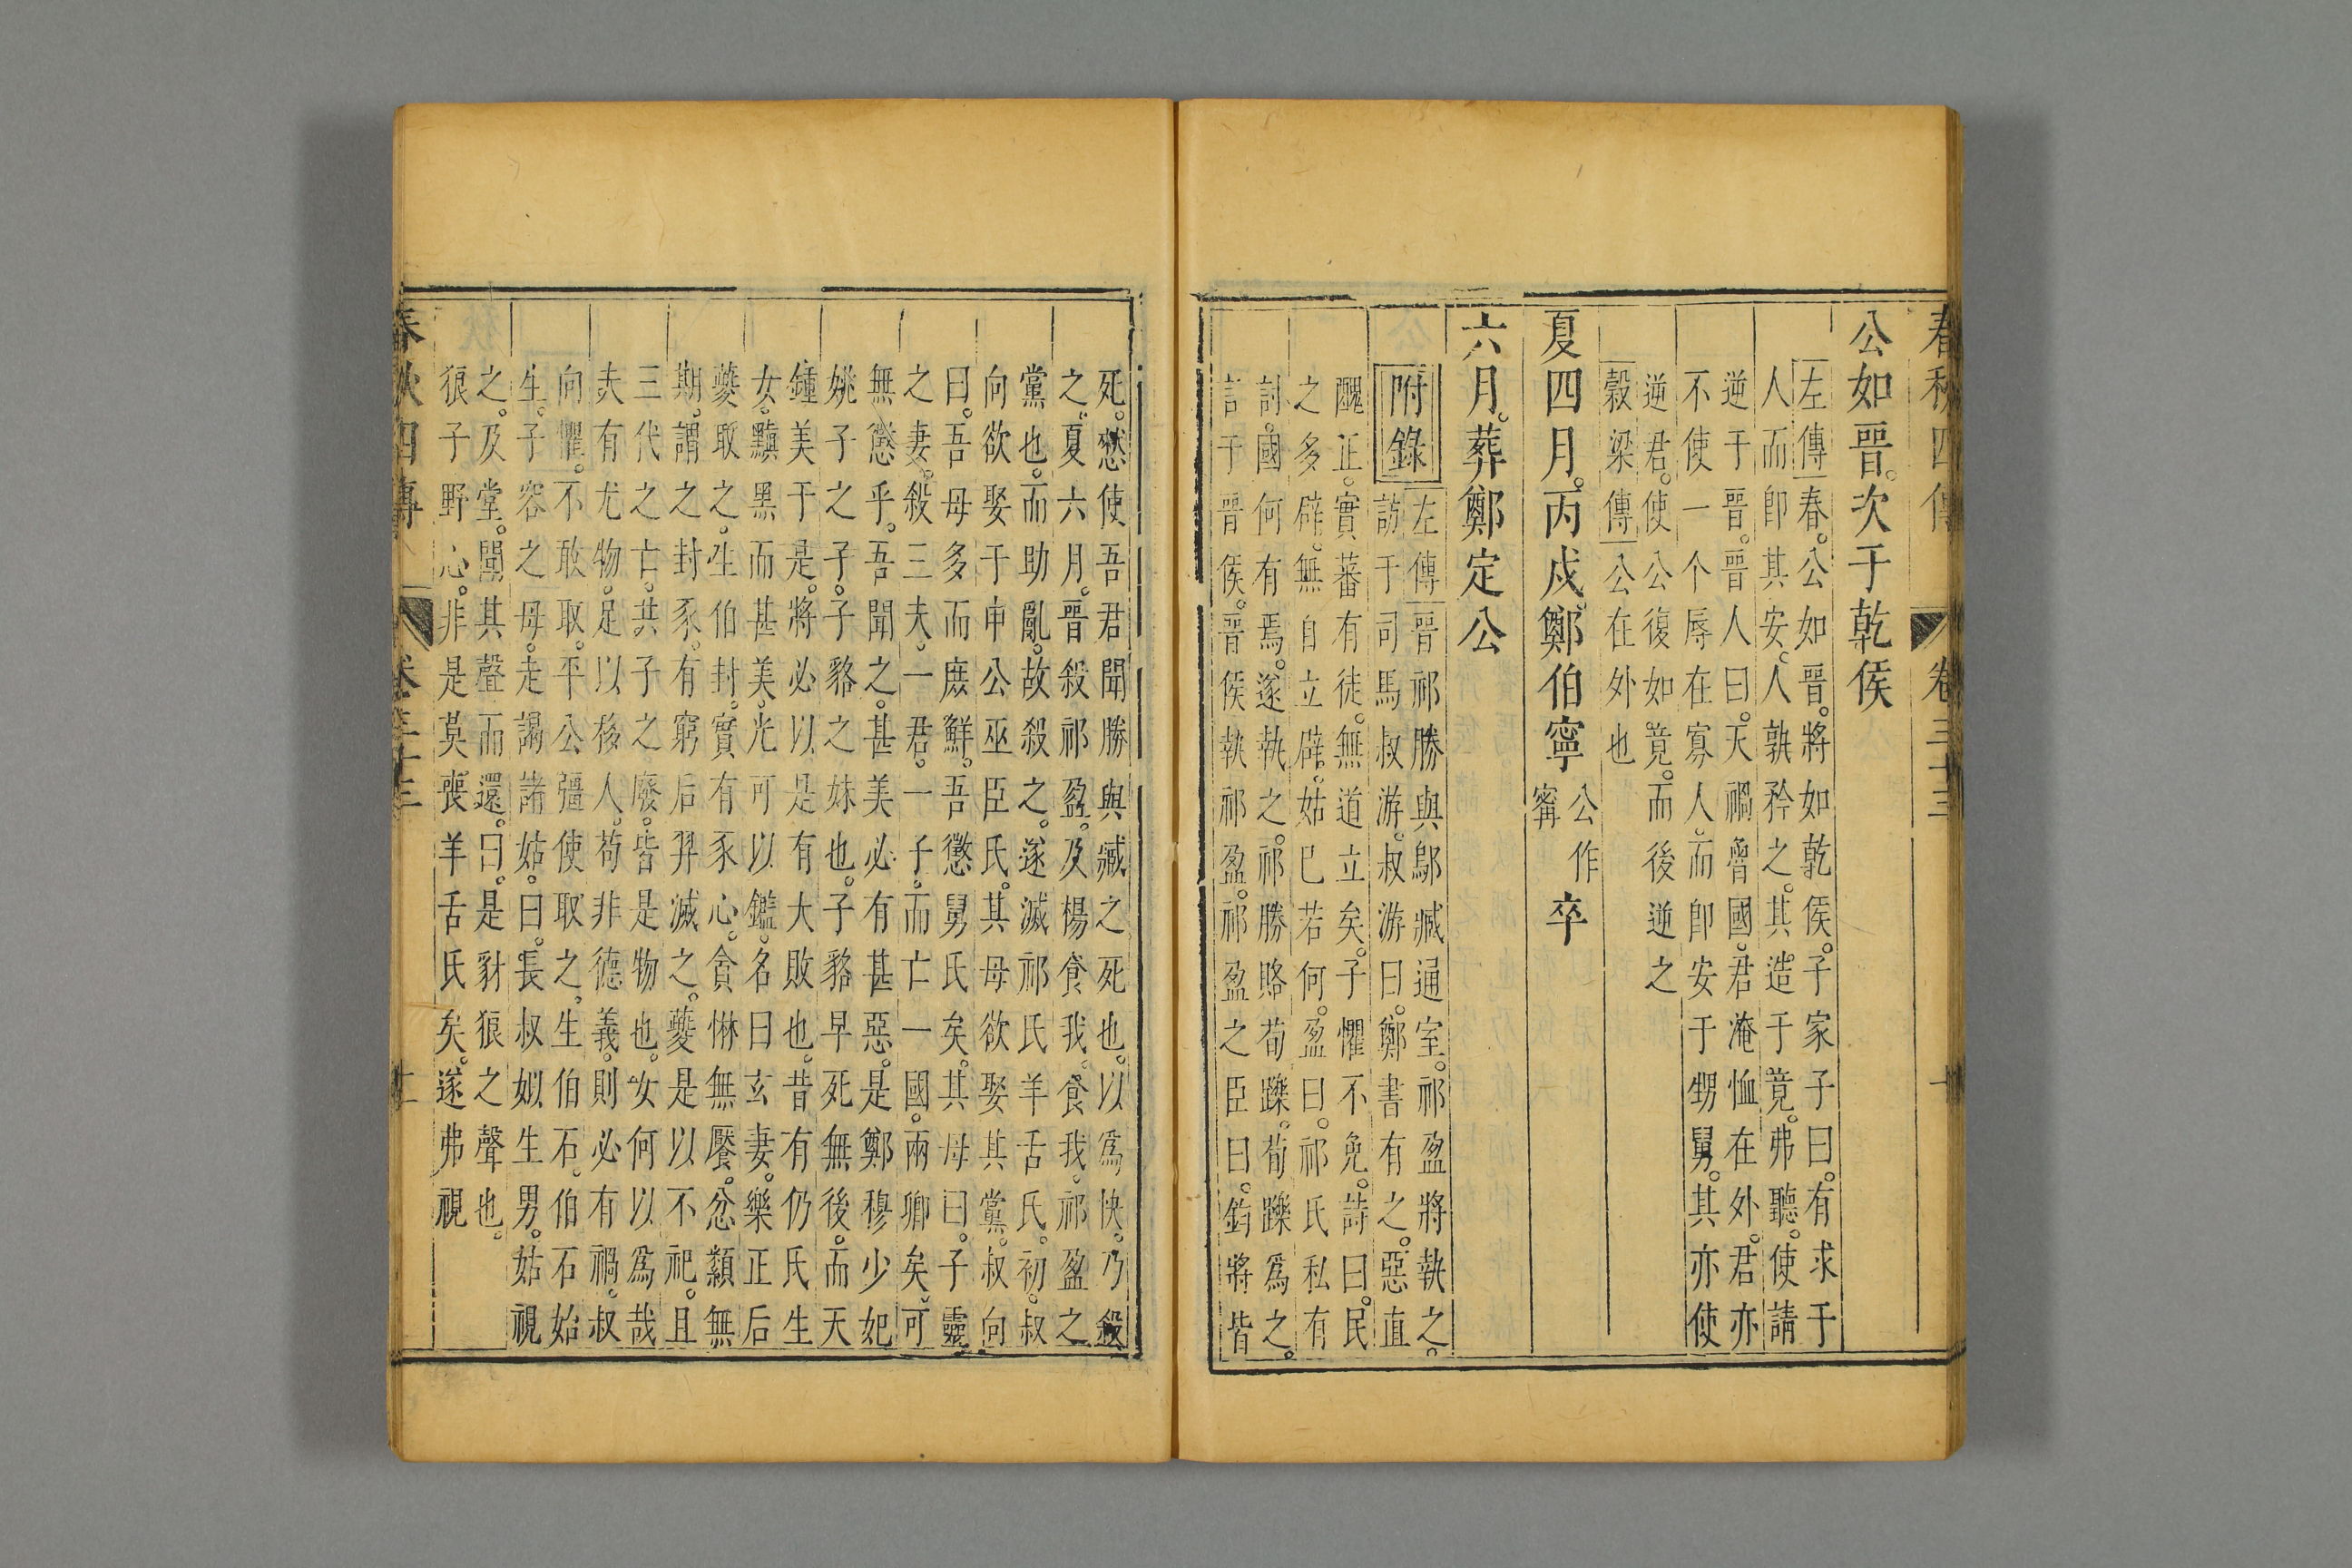 春秋四傳 卷三十三
公如晉。次于乾侯
左傳 春。公如晉。將如乾侯。子家子曰。有求于
人而卽其安。人孰矜之。其造于竟。弗聽。使請
逆于晉。晉人曰。天禍魯國。君淹恤在外。君亦
不使一个辱在寡人。而卽安于甥舅。其亦使
逆君。使公復如竟。而後逆之
穀梁傳 公在外也
夏四月。丙戌。鄭伯寧 公作甯 卒
六月。葬鄭定公
附錄 左傳 晉祁勝與鄔臧通室。祁盈將執之。
訪于司馬叔游。叔游曰。鄭書有之。惡直
醜正。實蕃有徒。無道立矣。子懼不免。詩曰。民
之多辟。無自立辟。姑已若何。盈曰。祁氏私有
討。國何有焉。遂執之。祁勝賂荀躒。荀躒爲之。
言于晉侯。晉侯執祁盈。祁盈之臣曰。鈞將皆
死。憖使吾君聞勝與臧之死也。以爲快。乃殺
之。夏六月。晉殺祁盈。及楊食我。食我。祁盈之
黨也。而助亂。故殺之。遂滅祁氏羊舌氏。初。叔
向欲娶于申公巫臣氏。其母欲娶其黨。叔向
曰。吾母多而庶鮮。吾懲舅氏矣。其母曰。子靈
之妻。殺三夫。一君。一子。而亡一國。兩卿矣。可
無懲乎。吾聞之。甚美必有甚惡。是鄭穆少妃
姚子之子。子貉之妹也。子貉早死無後。而天
鍾美于是。將必以是有大敗也。昔有仍氏生
女。黰黑而甚美。光可以鑑。名曰玄妻。樂正后
夔取之。生伯封。實有豕心。貪惏無饜。忿纇無
期。謂之封豕。有窮后羿滅之。夔是以不祀。且
三代之亡。共子之廢。皆是物也。女何以爲哉
夫有尤物。足以移人。苟非德義。則必有禍。叔
向懼。不敢取。平公彊使取之。生伯石。伯石始
生。子容之母。走謁諸姑。曰。長叔姒生男。姑視
之。及堂。聞其聲而還。曰。是豺狼之聲也。
狼子野心。非是莫喪羊舌氏矣。遂弗視
春秋四傳 卷三十三